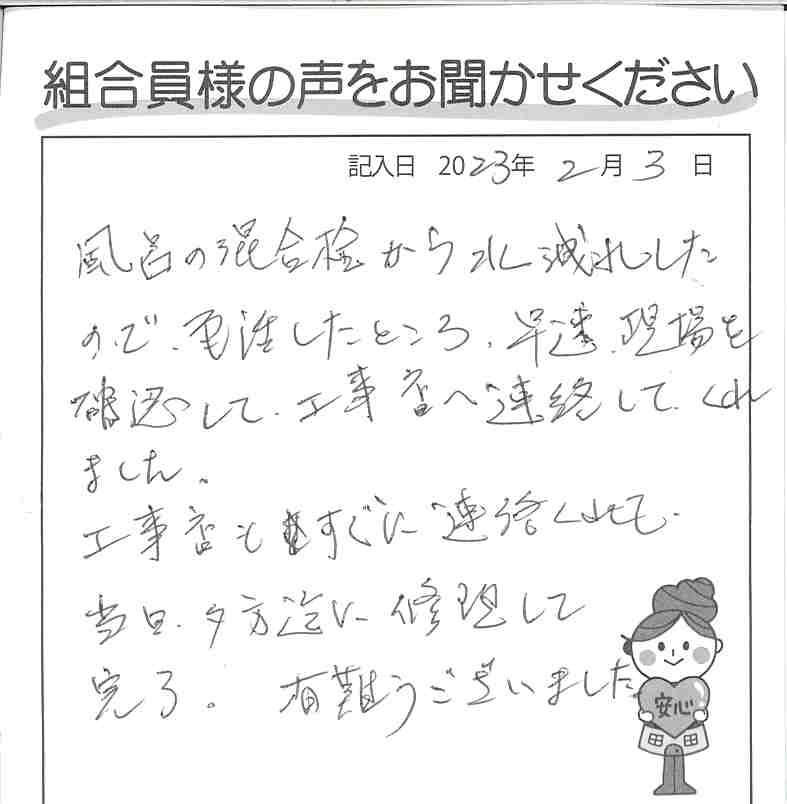 組合員様の声をお聞かせください
記入日 2023年 2月 3日
風呂の混合栓から水減れした
ので、電話したところ、早速、現場を
確認して、工事店へ連絡して、くれ
ました。
工事店もすぐに連絡くれて、
当日、夕方迄に修理して
完了。 有難うございました
安心